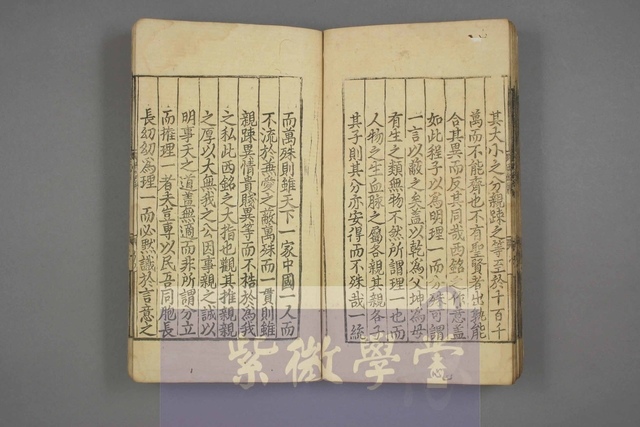 其大小之分親疎之等至於十百千
萬而不能齊也不有聖賢者出孰能
合其異而反其同哉西銘之作意蓋
如此程子以爲明理一而分殊可謂
一言以蔽之矣蓋以乾爲父坤爲母
有生之類無物不然所謂理一也而
人物之生血脉之屬各親其親各子
其子則其分亦安得而不殊哉一統
而萬殊則雖天下一家中國一人而
不流於兼愛之敝萬殊而一貫則雖
親踈異情貴賤異等而不梏於爲我
之私此西銘之大指也觀其推親親
之厚以大無我之公因事親之誠以
明事天之道蓋無適而非所謂分立
而推理一者夫豈專以民吾同胞長
長幼幼爲理一而必默識於言意之
紫微學堂